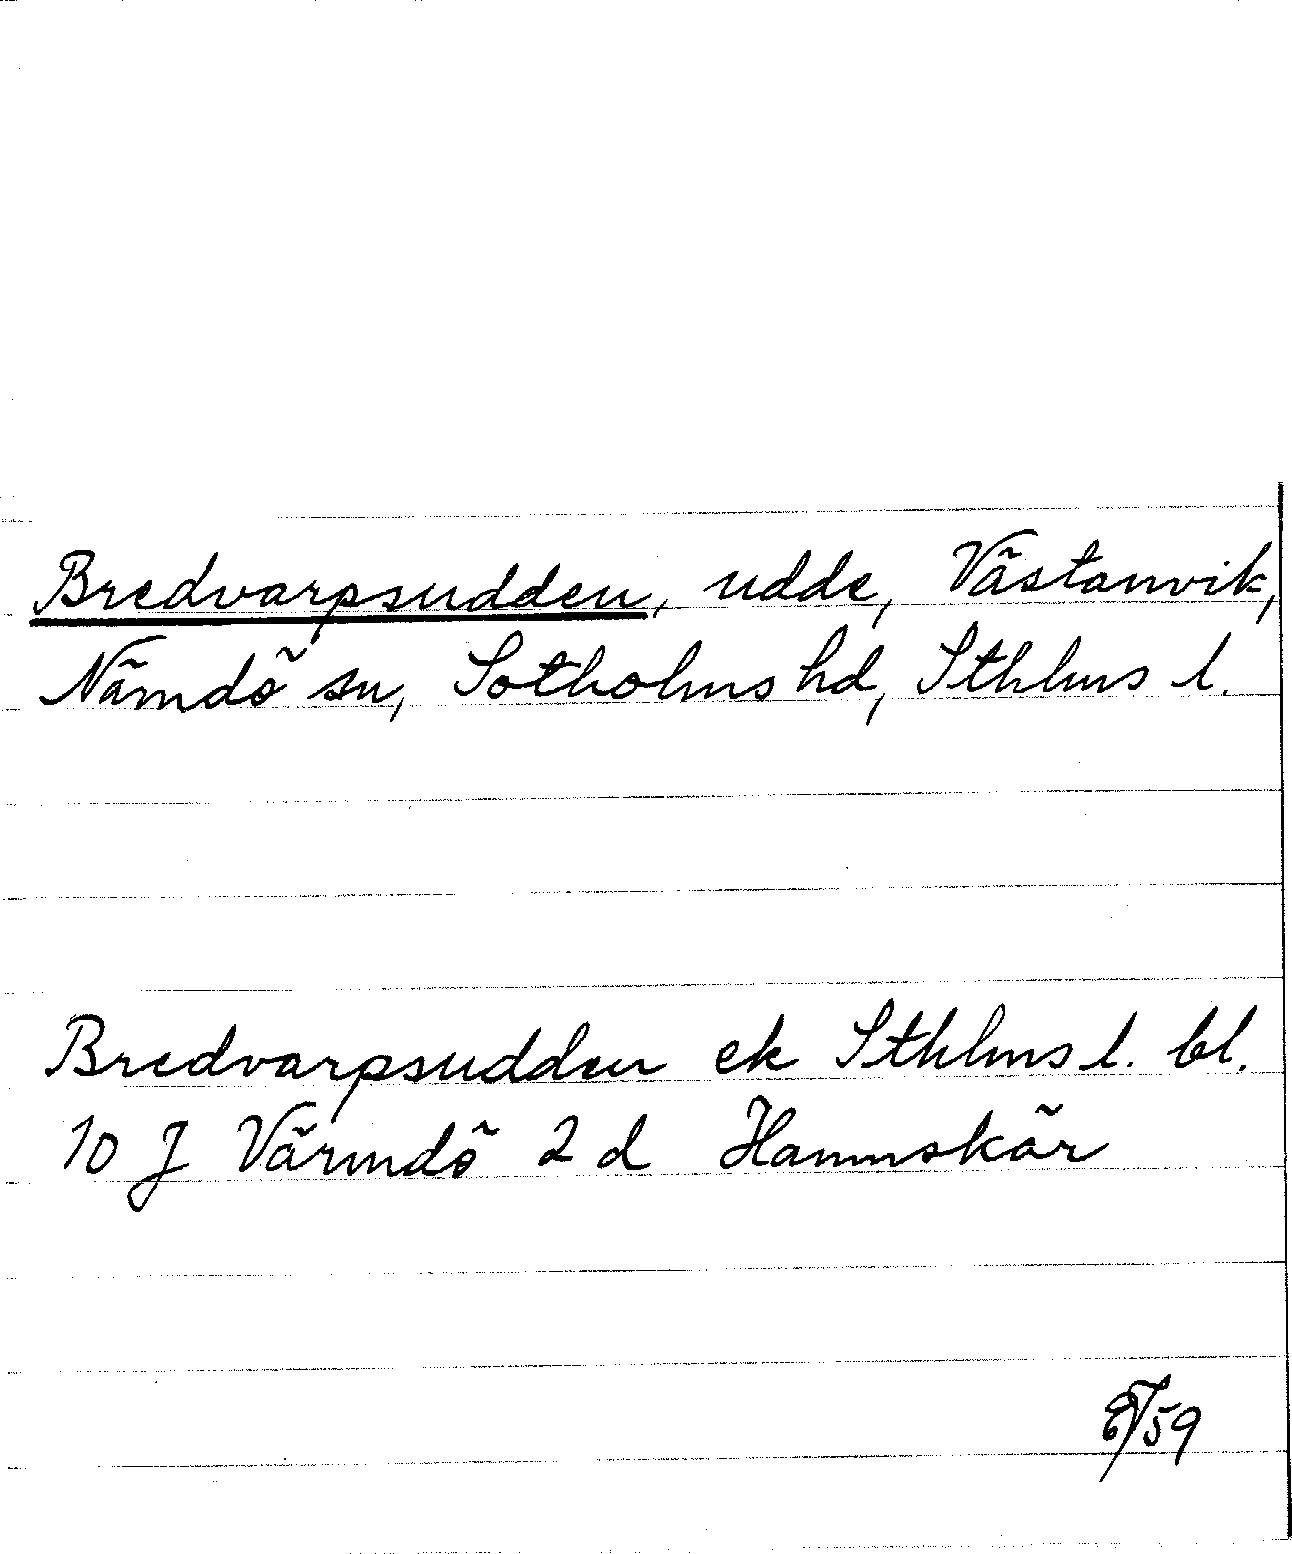 Bredvarpsudden, udde, Västanvik,
Nämdö sn, Sotholms hd, Sthlms l.
Bredvarpsudden ek Sthlms l. bl.
10 J Värmdö 2 d Hamnskär
/59